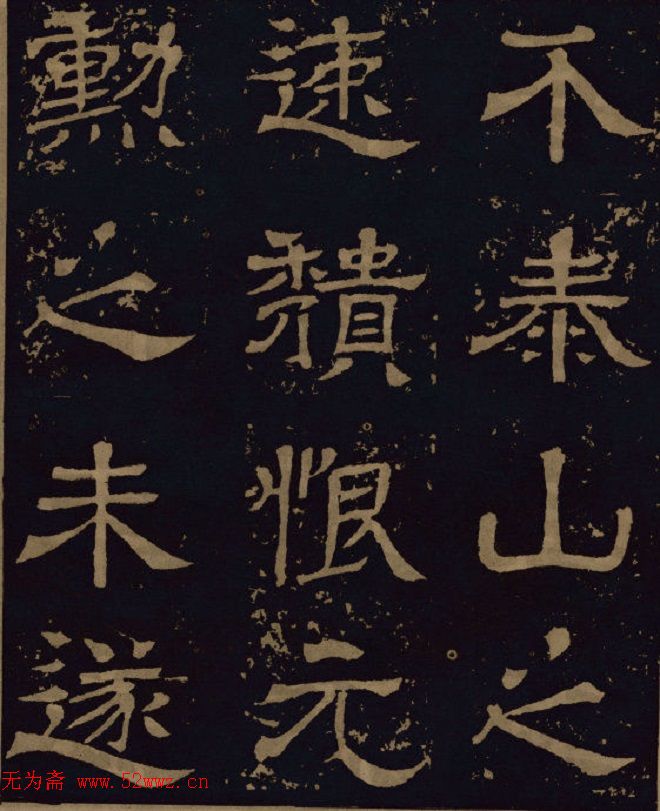 不泰山之
速穨恨元
勳之未遂
无为斋 www.52wwz.cn